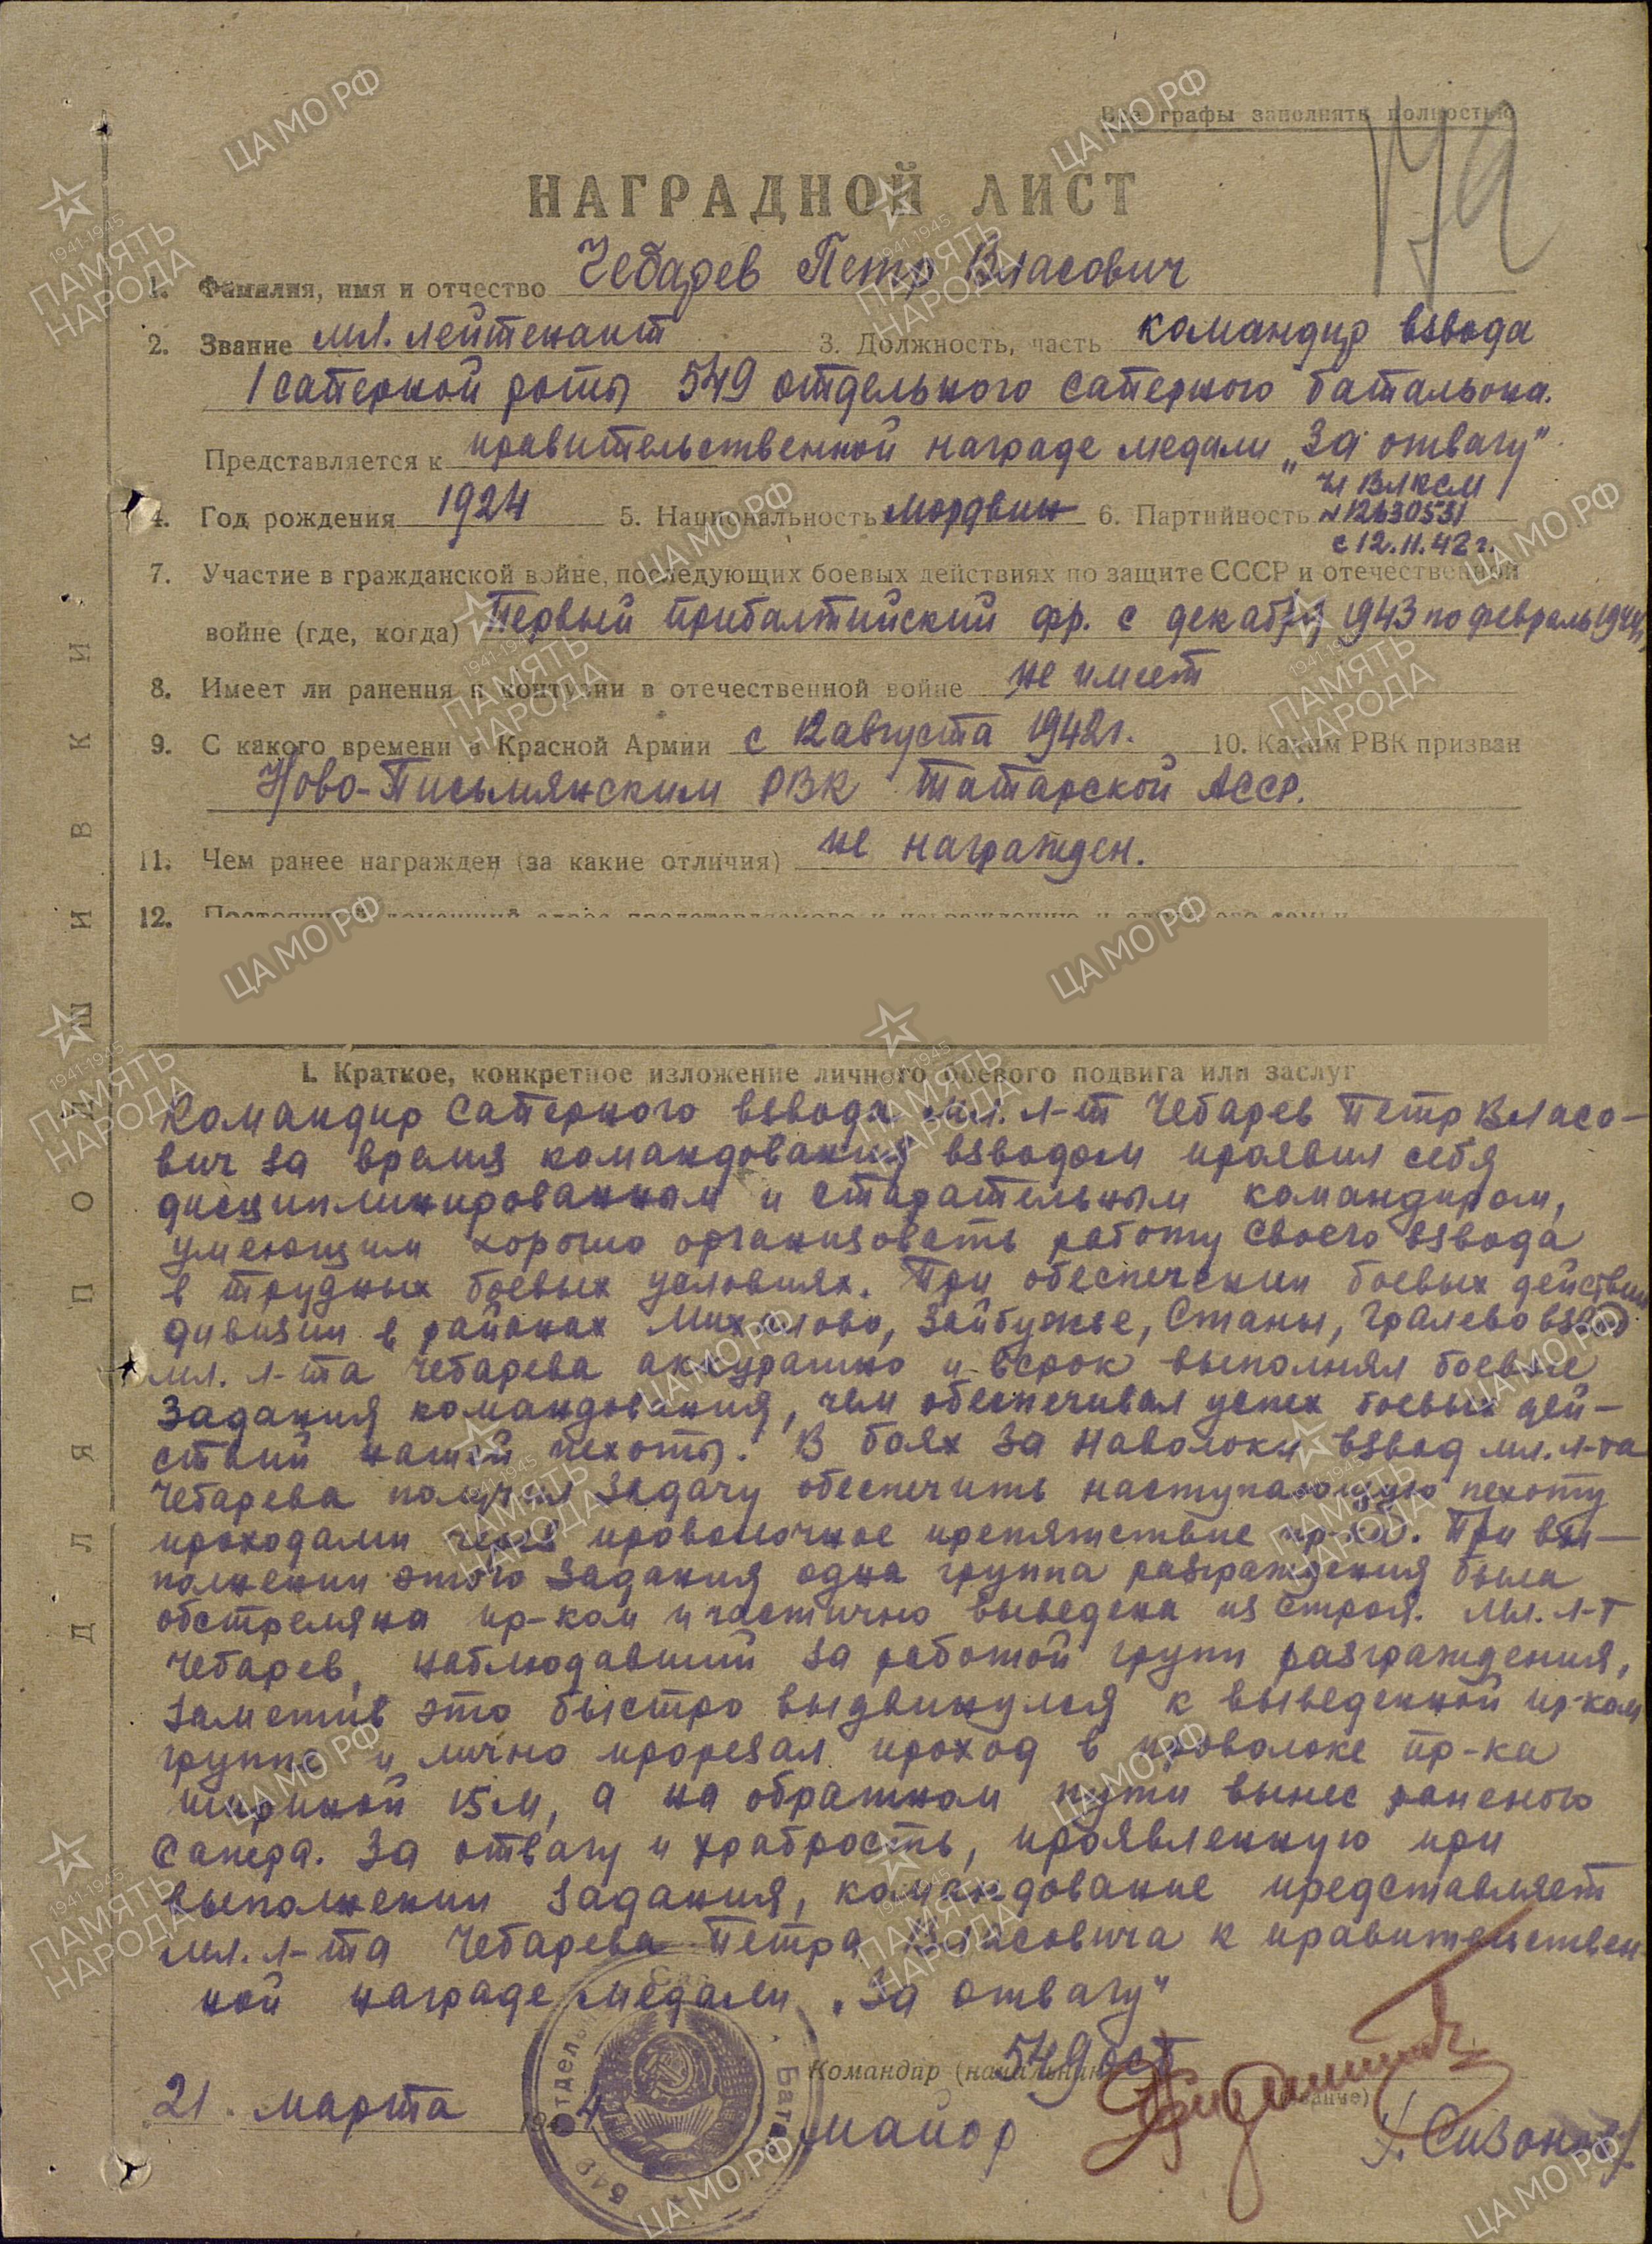 Все графы заполнять полностью
НАГРАДНОЙ ЛИСТ
1. Фамилия, имя и отчество Чебарев Петр Власович
2. Звание мл. лейтенант 3. Должность, часть командир взвода
1 саперной роты 549 отдельного саперного батальона.
Представляется к правительственной награде медали „За отвагу"
чл ВЛКСМ
4. Год рождения 1924 5. Национальность мордвин 6. Партийность №12630531
с 12.11.42 г.
7. Участие в гражданской войне, последующих боевых действиях по защите СССР и отечественной
войне (где, когда) Первый прибалтийский фр. с декабря 1943 по февраль 1944
8. Имеет ли ранения и контузии в отечественной войне не имеет
9. С какого времени в Красной Армии с 12 августа 1942г. 10. Каким РВК призван
Ново-Письмянским РВК Татарской АССР.
11. Чем ранее награжден (за какие отличия) не награжден.
12. Постоянный домашний адрес представляемого к награждению и адрес его семьи
I. Краткое, конкретное изложение личного боевого подвига или заслуг
Командир саперного взвода мл. л-т Чебарев Петр Власо-
вич за время командования взводом проявил себя
дисциплинированным и старательным командиром,
умеющим хорошо организовать работу своего взвода
в трудных боевых условиях. При обеспечении боевых действий
дивизии в районах Михалово, Зайбужье, Станы, Гралево взвод
мл. л-та Чебарева аккуратно и всрок выполнял боевые
задания командования, чем обеспечивал успех боевых дей-
ствий нашей пехоты. В боях за Наволоки взвод мл. л-та
Чебарева получил задачу обеспечить наступающую пехоту
проходами через проволочное препятствие пр-ка. При вы-
полнении этого задания одна группа разграждения была
обстреляна пр-ком и частично выведена из строя. Мл. л-т
Чебарев, наблюдавший за работой групп разграждения,
заметив это быстро выдвинулся к выведенной пр-ком
группе и лично прорезал проход в проволоке пр-ка
шириной 15 м, а на обратном пути вынес раненого
сапера. За отвагу и храбрость, проявленную при
выполнении задания, командование представляет
мл. л-та Чебарева Петра Власовича к правительствен
ной награде медали „За отвагу"
Командир (начальник) 549 осб
(звание)
21 марта 1944
майор Сизонов
ДЛЯ ПОДШИВКИ
ЦАМО РФ
1941-1945
ПАМЯТЬ
НАРОДА